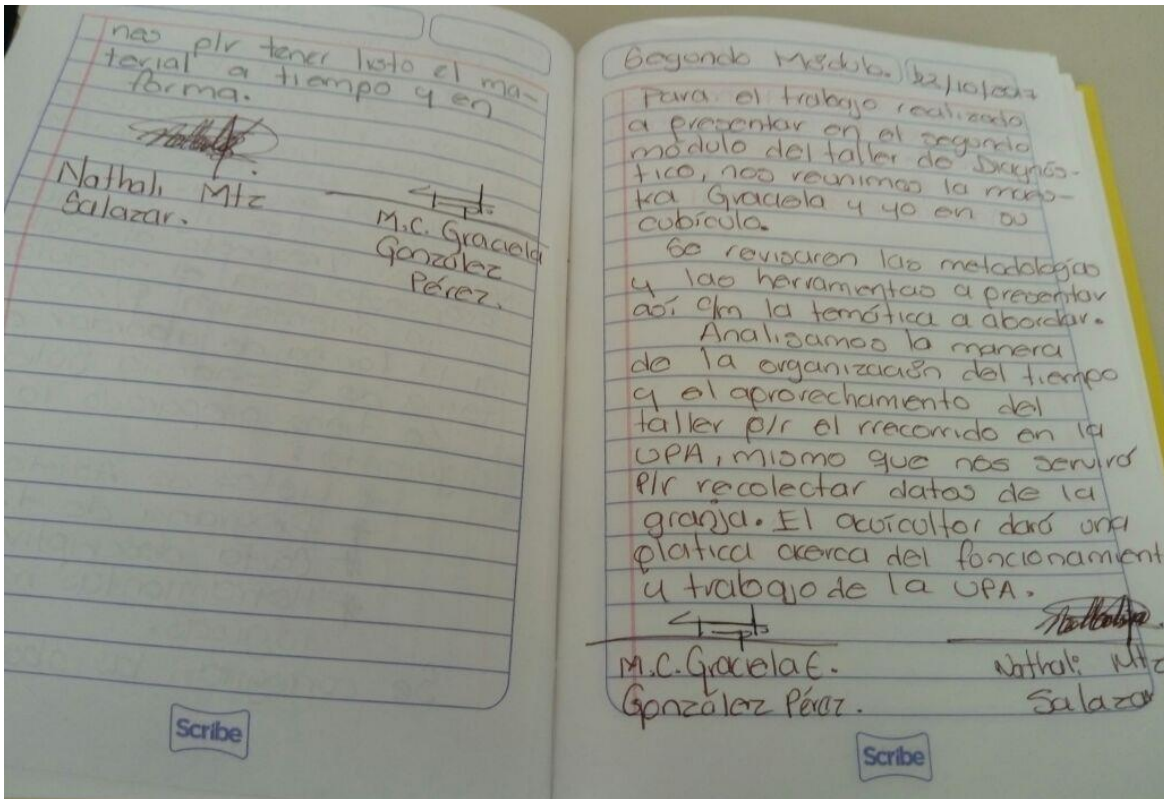 nas p/r tener listo el ma-
terial a tiempo y en
forma.
Nathali Mtz
Salazar.
M.C. Graciela
González
Pérez.
Scribe
Segundo Módulo.
Para el trabajo realizado
a presentar en el segundo
módulo del taller de Diagnós-
tico, nos reunimos la maes-
tra Graciela y yo en su
cubículo.
Se revisaron las metodologías
y las herramientas a presentar
así c/m la temática a abordar.
Analisamos la manera
de la organización del tiempo
y el aprovechamiento del
taller p/r el rrecorrido en la
UPA, mismo que nos servirá
p/r recolectar datos de la
granja. El acuicultor dará una
platica acerca del funcionamient
y trabajo de la UPA.
M.C. Graciela E.
González Pérez.
Nathali Mtz
Salazar
Scribe